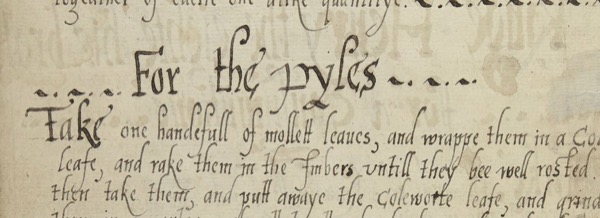 together of eache one alike quantitye.
For the pyles
Take one handefull of mollett leaves, and wrappe them in a
leafe, and rake them in the Imbers untill they bee well rosted.
then take them, and putt awaye the Coleworte leafe, and